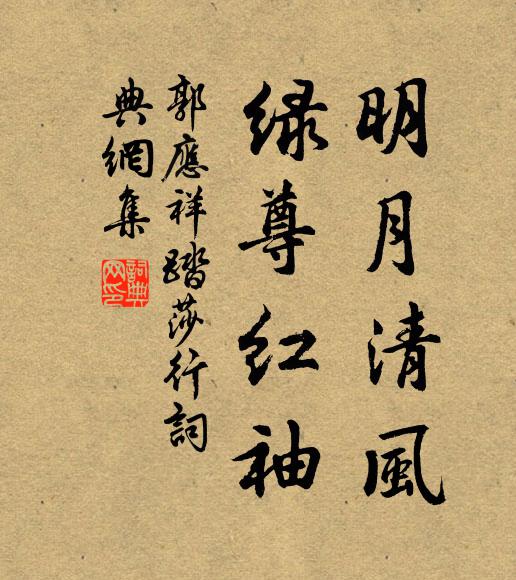 明月清風
绿尊红袖
郭應祥踏莎行詞
典網集
詞典网印